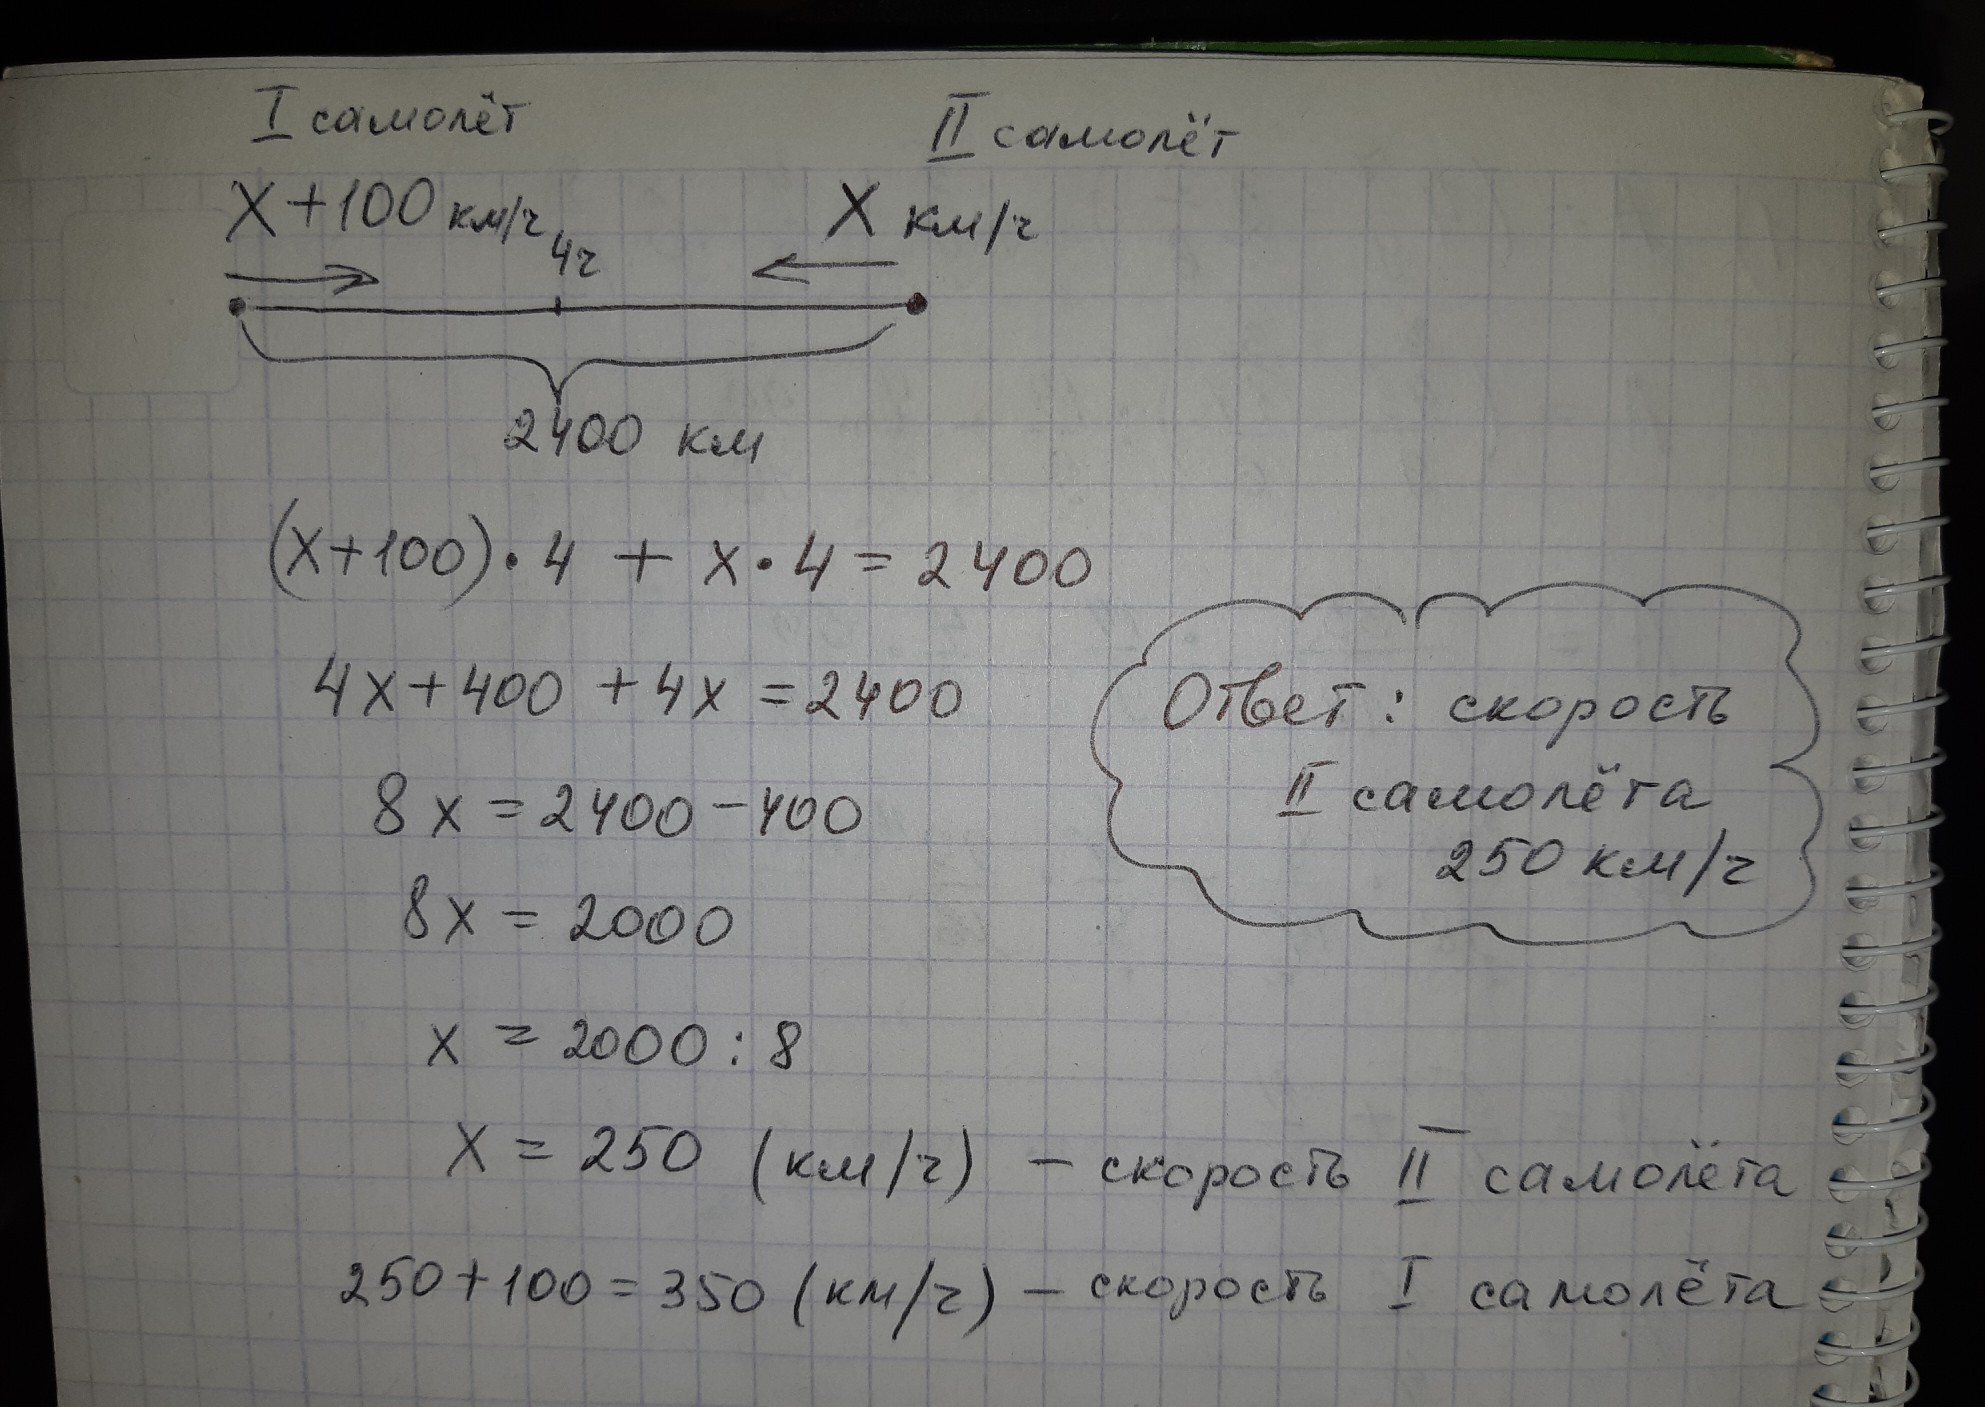 I самолёт
II самолёт
X+100 км/ч
4ч
X км/ч
2400 км
(x+100)·4 + x·4=2400
4x+400 +4x =2400
8x=2400-400
8x = 2000
x = 2000:8
x = 250 (км/ч) – скорость II самолёта
250+100=350 (км/ч) – скорость I самолёта
Ответ: скорость
II самолёта
250 км/ч